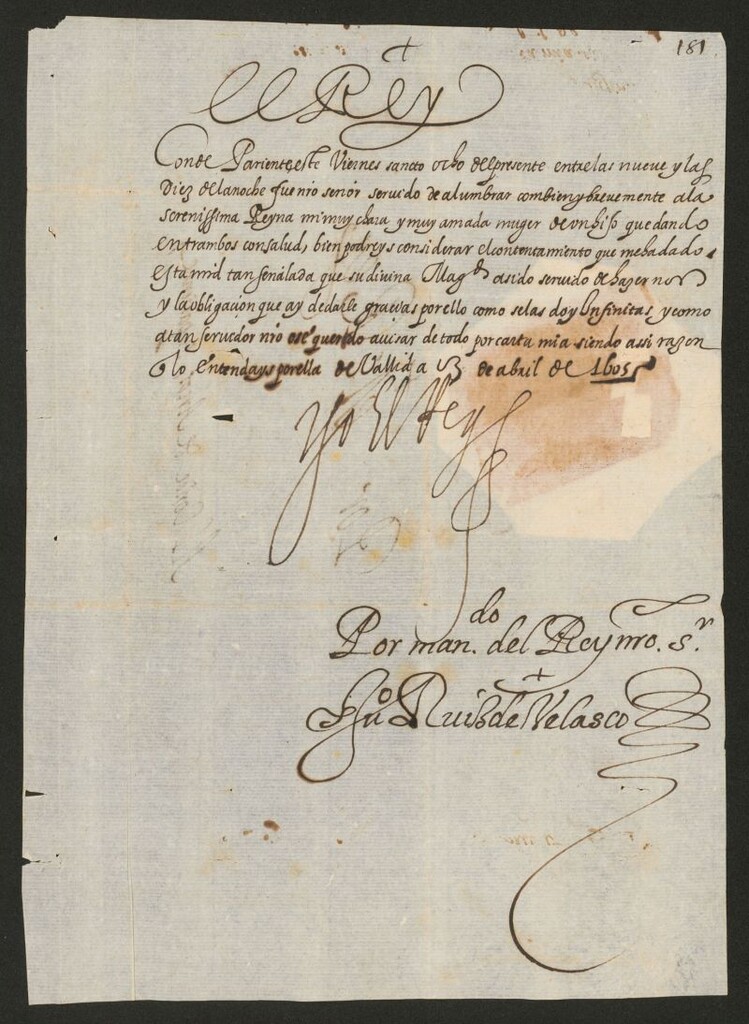 181
El Rey
Conde Pariente este Viernes sancto ocho del presente entre las nueve y las
Diez de la noche fue nro senor servido de alumbrar con bien y brevemente a la
serenissima Reyna mi muy chara y muy amada muger de un hijo quedando
entrambos con salud, bien podreys considerar el contentamiento que me ha dado
esta mrd tan señalada que su divina Magd. a sido servido de hazernos
y la obligacion que ay de darle gracias por ello como se las doy Infinitas, y como
a tan servidor nro os e querido avisar de todo por carta mia siendo assi razon
lo entendays por ella de Vallid a 13 de abril de 1605
Yo El Rey
Por man.do del Rey nro. sr.
Juo Ruiz de Velasco